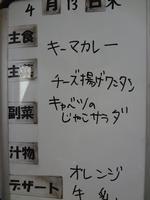 4月13日木
主食 キーマカレー
主菜 チーズ揚げワンタン
副菜 キャベツの
じゃこサラダ
汁物
デザート オレンジ
牛乳